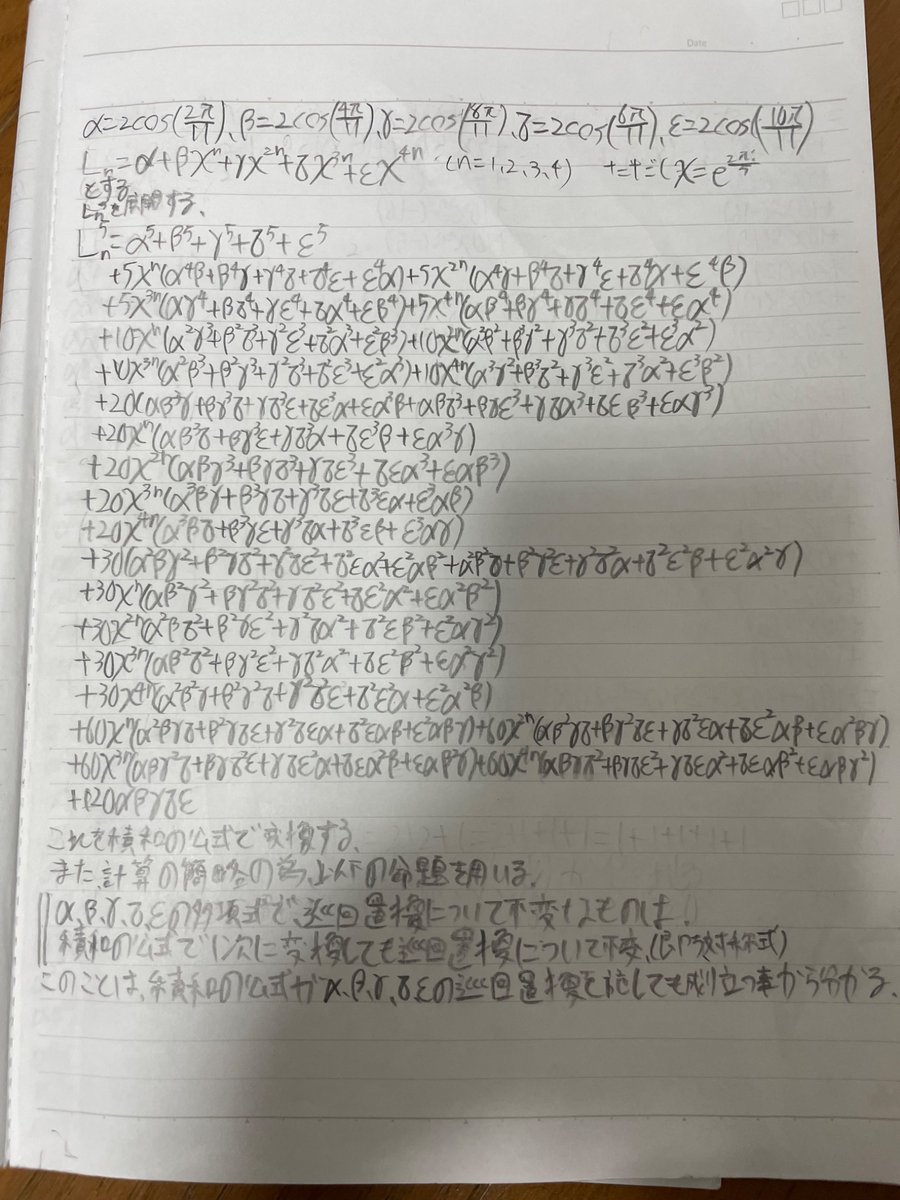 Date
α=2cos(2π/11)、β=2cos(4π/11)、γ=2cos(8π/11)、δ=2cos(6π/11)、ε=2cos(10π/11)
L_n=α+βχ^n+γχ^{2n}+δχ^{3n}+εχ^{4n} (n=1,2,3,4) ただし(χ=e^{2πi/5}
とする
L_n^5を展開する、
L_n^5=α^5+β^5+γ^5+δ^5+ε^5
+5χ^n(α^4β+β^4γ+γ^4δ+δ^4ε+ε^4α)+5χ^{2n}(α^4γ+β^4δ+γ^4ε+δ^4α+ε^4β)
+5χ^{3n}(αγ^4+βδ^4+γε^4+δα^4+εβ^4)+5χ^{4n}(αβ^4+βγ^4+γδ^4+δε^4+εα^4)
+10χ^n(α^2γ^3+β^2δ^3+γ^2ε^3+δ^2α^3+ε^2β^3)+10χ^{2n}(α^3β^2+β^3γ^2+γ^3δ^2+δ^3ε^2+ε^3α^2)
+10χ^{3n}(α^2β^3+β^2γ^3+γ^2δ^3+δ^2ε^3+ε^2α^3)+10χ^{4n}(α^3γ^2+β^3δ^2+γ^3ε^2+δ^3α^2+ε^3β^2)
+20(αβ^3γ+βγ^3δ+γδ^3ε+δε^3α+εα^3β+αβδ^3+βγε^3+γδα^3+δεβ^3+εαγ^3)
+20χ^n(αβ^3δ+βγ^3ε+γδ^3α+δε^3β+εα^3γ)
+20χ^{2n}(αβγ^3+βγδ^3+γδε^3+δεα^3+εαβ^3)
+20χ^{3n}(α^3βγ+β^3γδ+γ^3δε+δ^3εα+ε^3αβ)
+20χ^{4n}(α^3βδ+β^3γε+γ^3δα+δ^3εβ+ε^3αγ)
+30(α^2βγ^2+β^2γδ^2+γ^2δε^2+δ^2εα^2+ε^2αβ^2+α^2β^2δ+β^2γ^2ε+γ^2δ^2α+δ^2ε^2β+ε^2α^2γ)
+30χ^n(αβ^2γ^2+βγ^2δ^2+γδ^2ε^2+δε^2α^2+εα^2β^2)
+30χ^{2n}(α^2βδ^2+β^2γε^2+γ^2δα^2+δ^2εβ^2+ε^2αγ^2)
+30χ^{3n}(αβ^2δ^2+βγ^2ε^2+γδ^2α^2+δε^2β^2+εα^2γ^2)
+30χ^{4n}(α^2β^2γ+β^2γ^2δ+γ^2δ^2ε+δ^2ε^2α+ε^2α^2β)
+60χ^n(α^2βγδ+β^2γδε+γ^2δεα+δ^2εαβ+ε^2αβγ)+60χ^{2n}(αβ^2γδ+βγ^2δε+γδ^2εα+δε^2αβ+εα^2βγ)
+60χ^{3n}(αβγ^2δ+βγδ^2ε+γδε^2α+δεα^2β+εαβ^2γ)+60χ^{4n}(αβγδ^2+βγδε^2+γδεα^2+δεαβ^2+εαβγ^2)
+120αβγδε
これを積和の公式で変換する、
また、計算の簡略の為、以下の命題を用いる、
α,β,γ,δ,εの多項式で、巡回置換について不変なものは、
積和の公式で1次に変換しても巡回置換について不変、(即ち対称式)
このことは、積和の公式がα,β,γ,δ,εの巡回置換を施しても成り立つ事から分かる、